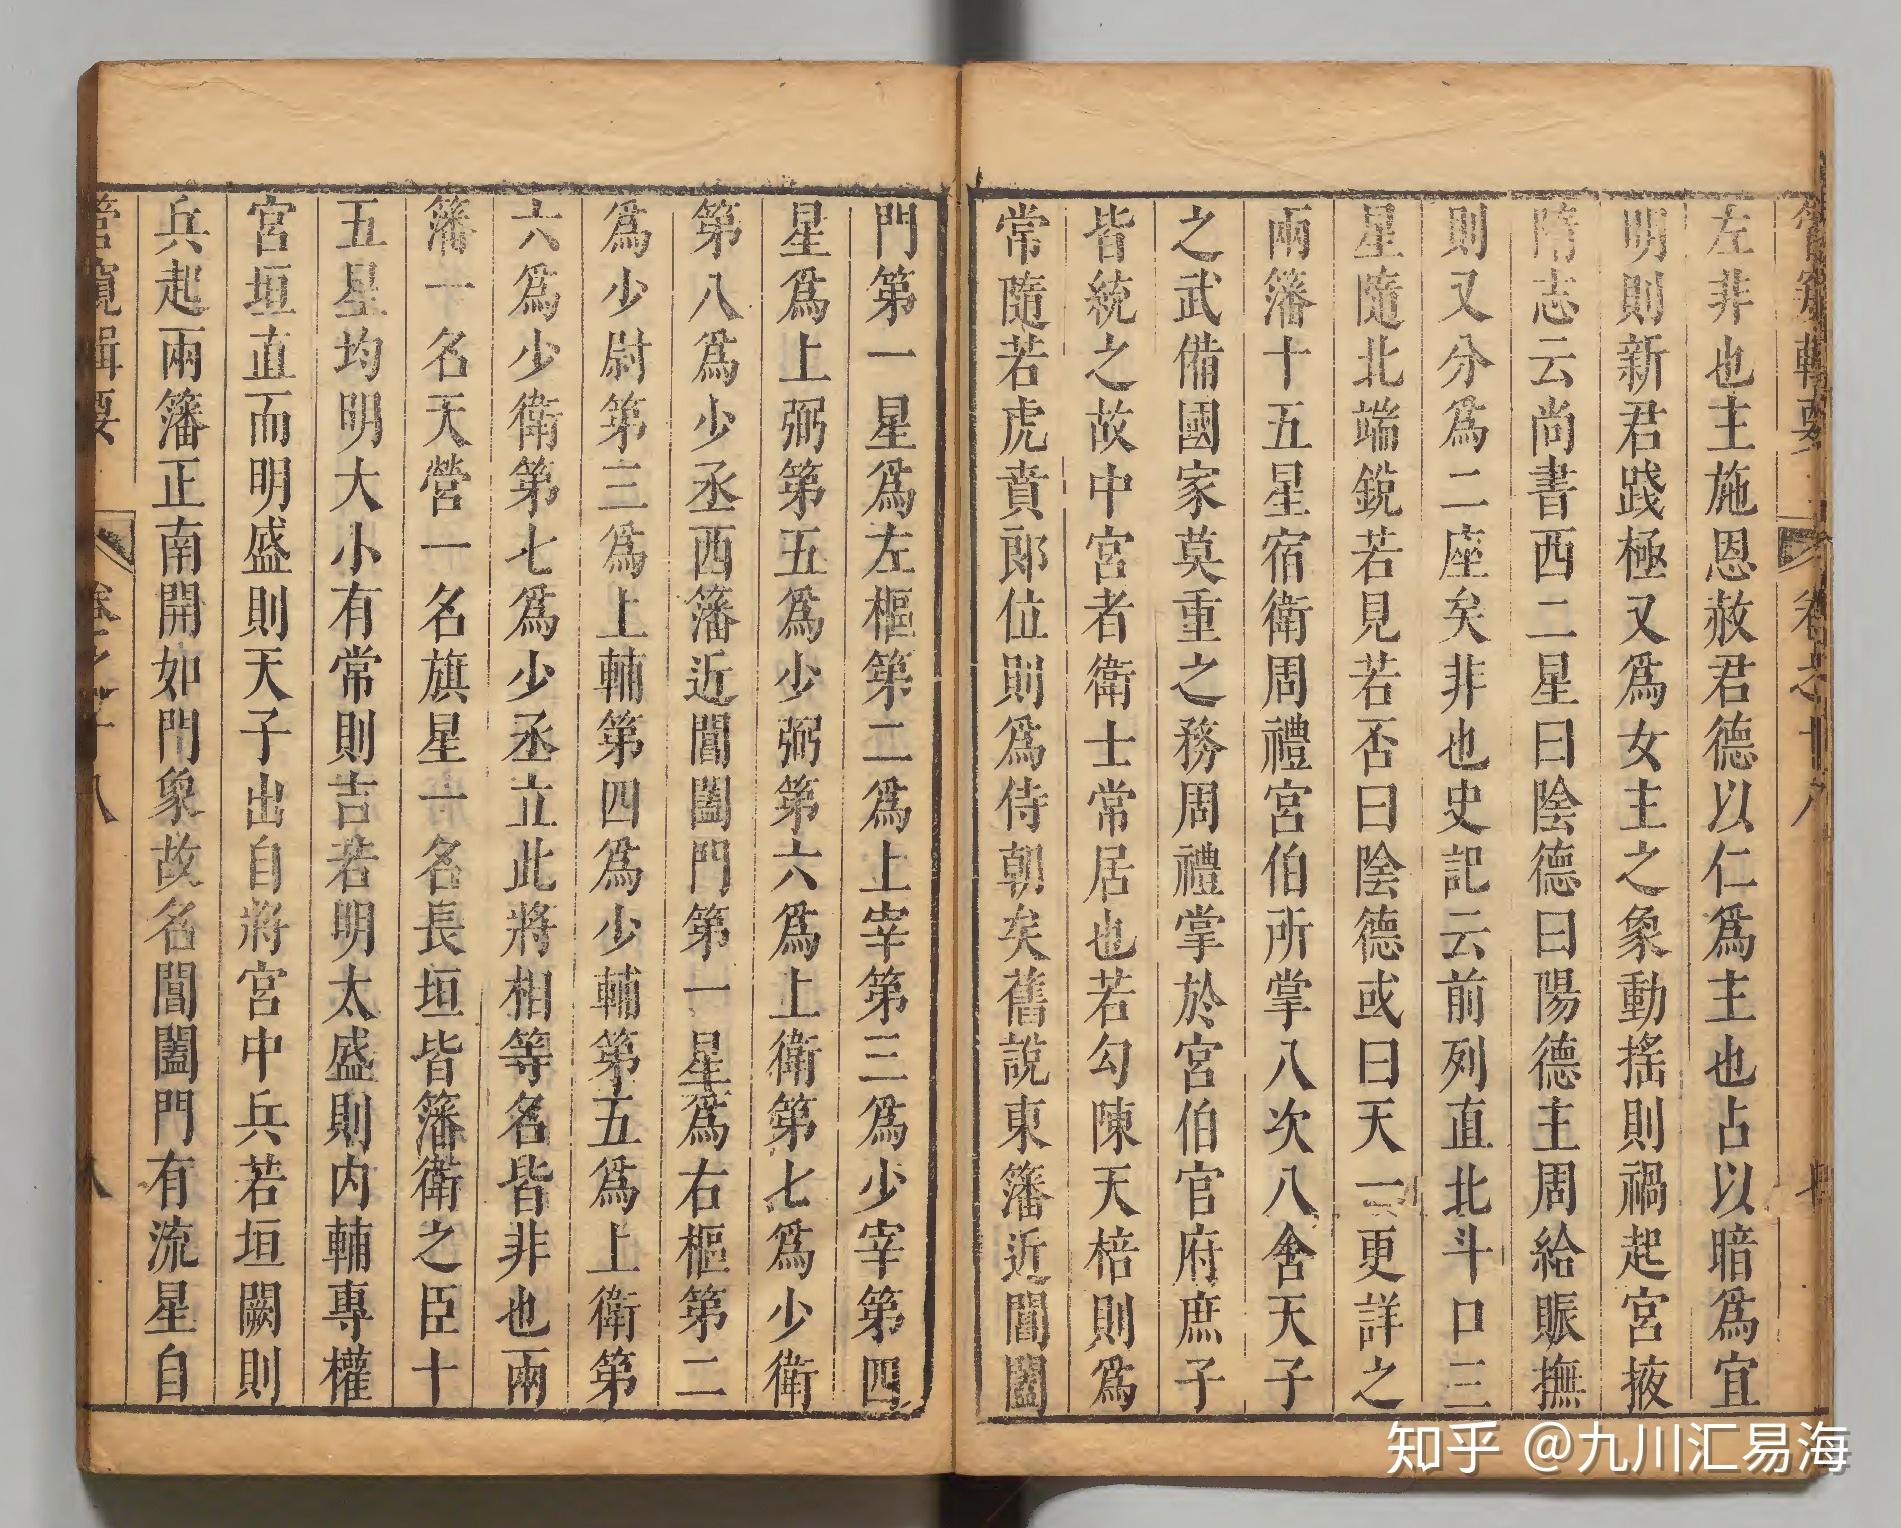 管窺輯要 卷之十八 七
左非也主施恩赦君德以仁爲主也占以暗爲宜
明則新君踐極又爲女主之象動搖則禍起宮掖
隋志云尚書西二星曰陰德曰陽德主周給賑撫
則又分爲二座矣非也史記云前列直北斗口三
星隨北端銳若見若否曰陰德或曰天一更詳之
兩籓十五星宿衛周禮宮伯所掌八次八舍天子
之武備國家莫重之務周禮掌於宮伯官府庶子
皆統之故中宮者衛士常居也若勾陳天棓則爲
常隨若虎賁郎位則爲侍朝矣舊說東籓近閶闔
門第一星爲左樞第二爲上宰第三爲少宰第四
星爲上弼第五爲少弼第六爲上衛第七爲少衛
第八爲少丞西籓近閶闔門第一星爲右樞第二
爲少尉第三爲上輔第四爲少輔第五爲上衛第
六爲少衛第七爲少丞立此將相等名皆非也兩
籓一名天營一名旗星一名長垣皆籓衛之臣十
五星均明大小有常則吉若明太盛則内輔專權
宮垣直而明盛則天子出自將宮中兵若垣闕則
兵起兩籓正南開如門象故名閶闔門有流星自
管窺輯要 卷之十八 八
知乎 @九川汇易海